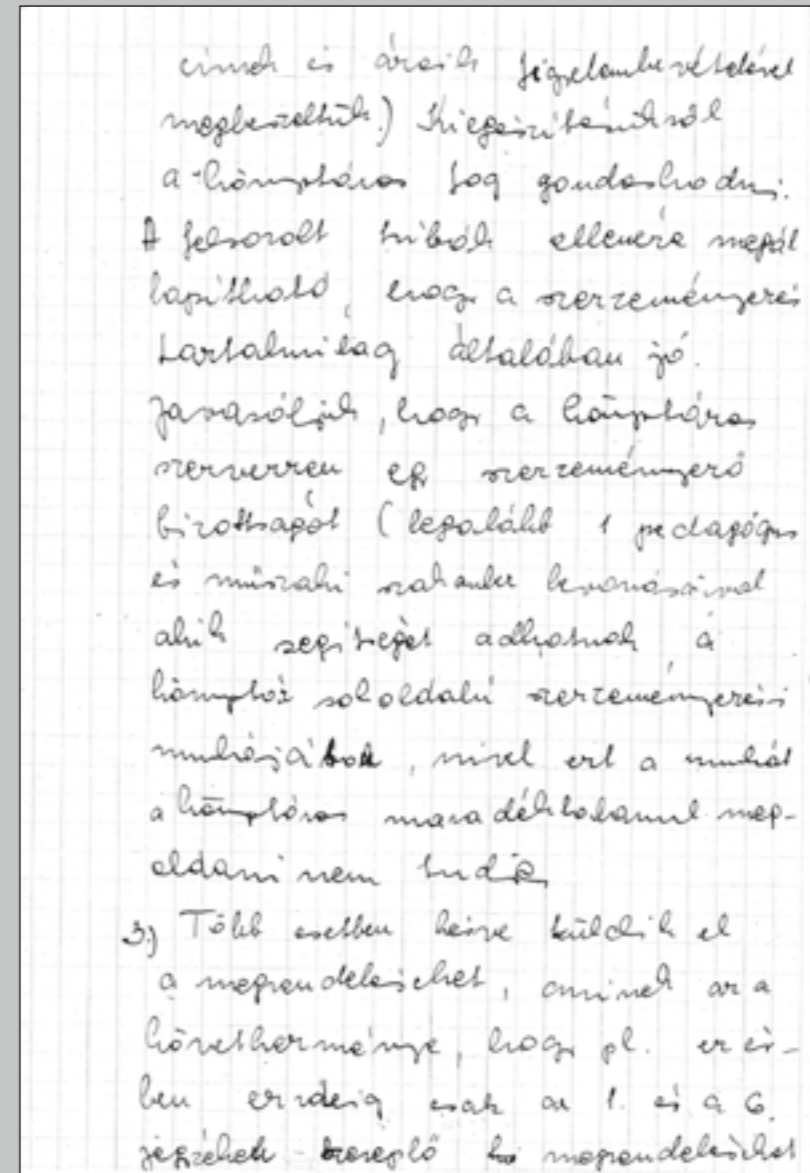 címek és áraik figyelembevételével
megbeszéltük.) Kiegészítésükről
a könyvtáros fog gondoskodni.
A felsorolt hibák ellenére megál
lapítható, hogy a szerzeményezés
tartalmilag általában jó.
Javasoljuk, hogy a könyvtáros
szervezzen egy szerzeményező
bizottságot (legalább 1 pedagógus
és műszaki szakember bevonásával
akik segítséget adhatnak a
könyvtár sokoldalú szerzeményezési
munkájában, mivel ezt a munkát
a könyvtáros maradéktalanul meg-
oldani nem tudja
3.) Több esetben késve küldik el
a megrendeléseket, aminek az a
következménye, hogy pl. ez év-
ben ezideig csak az 1. és a 6.
jegyzéken szereplő megrendeléseket